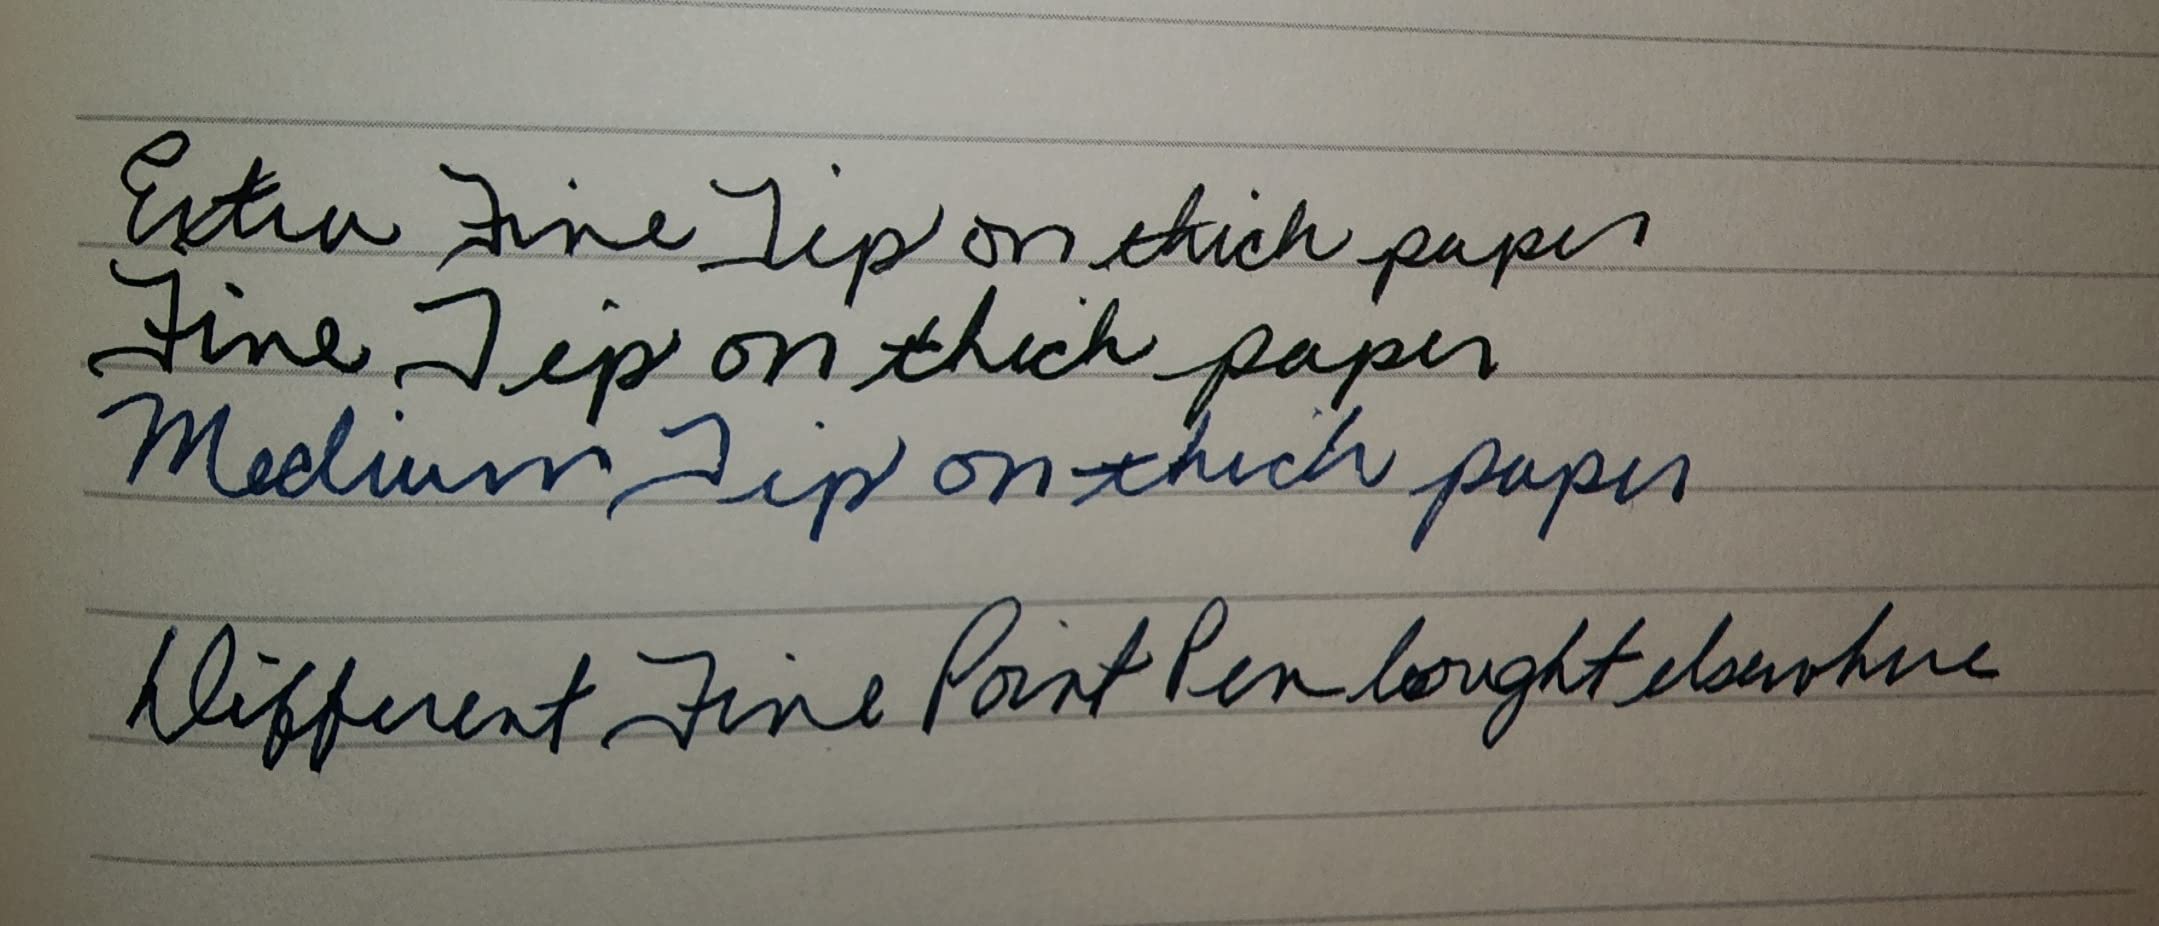 Extra Fine Tip on thick paper
Fine Tip on thick paper
Medium Tip on thick paper
Different Fine Point Pen bought elsewhere